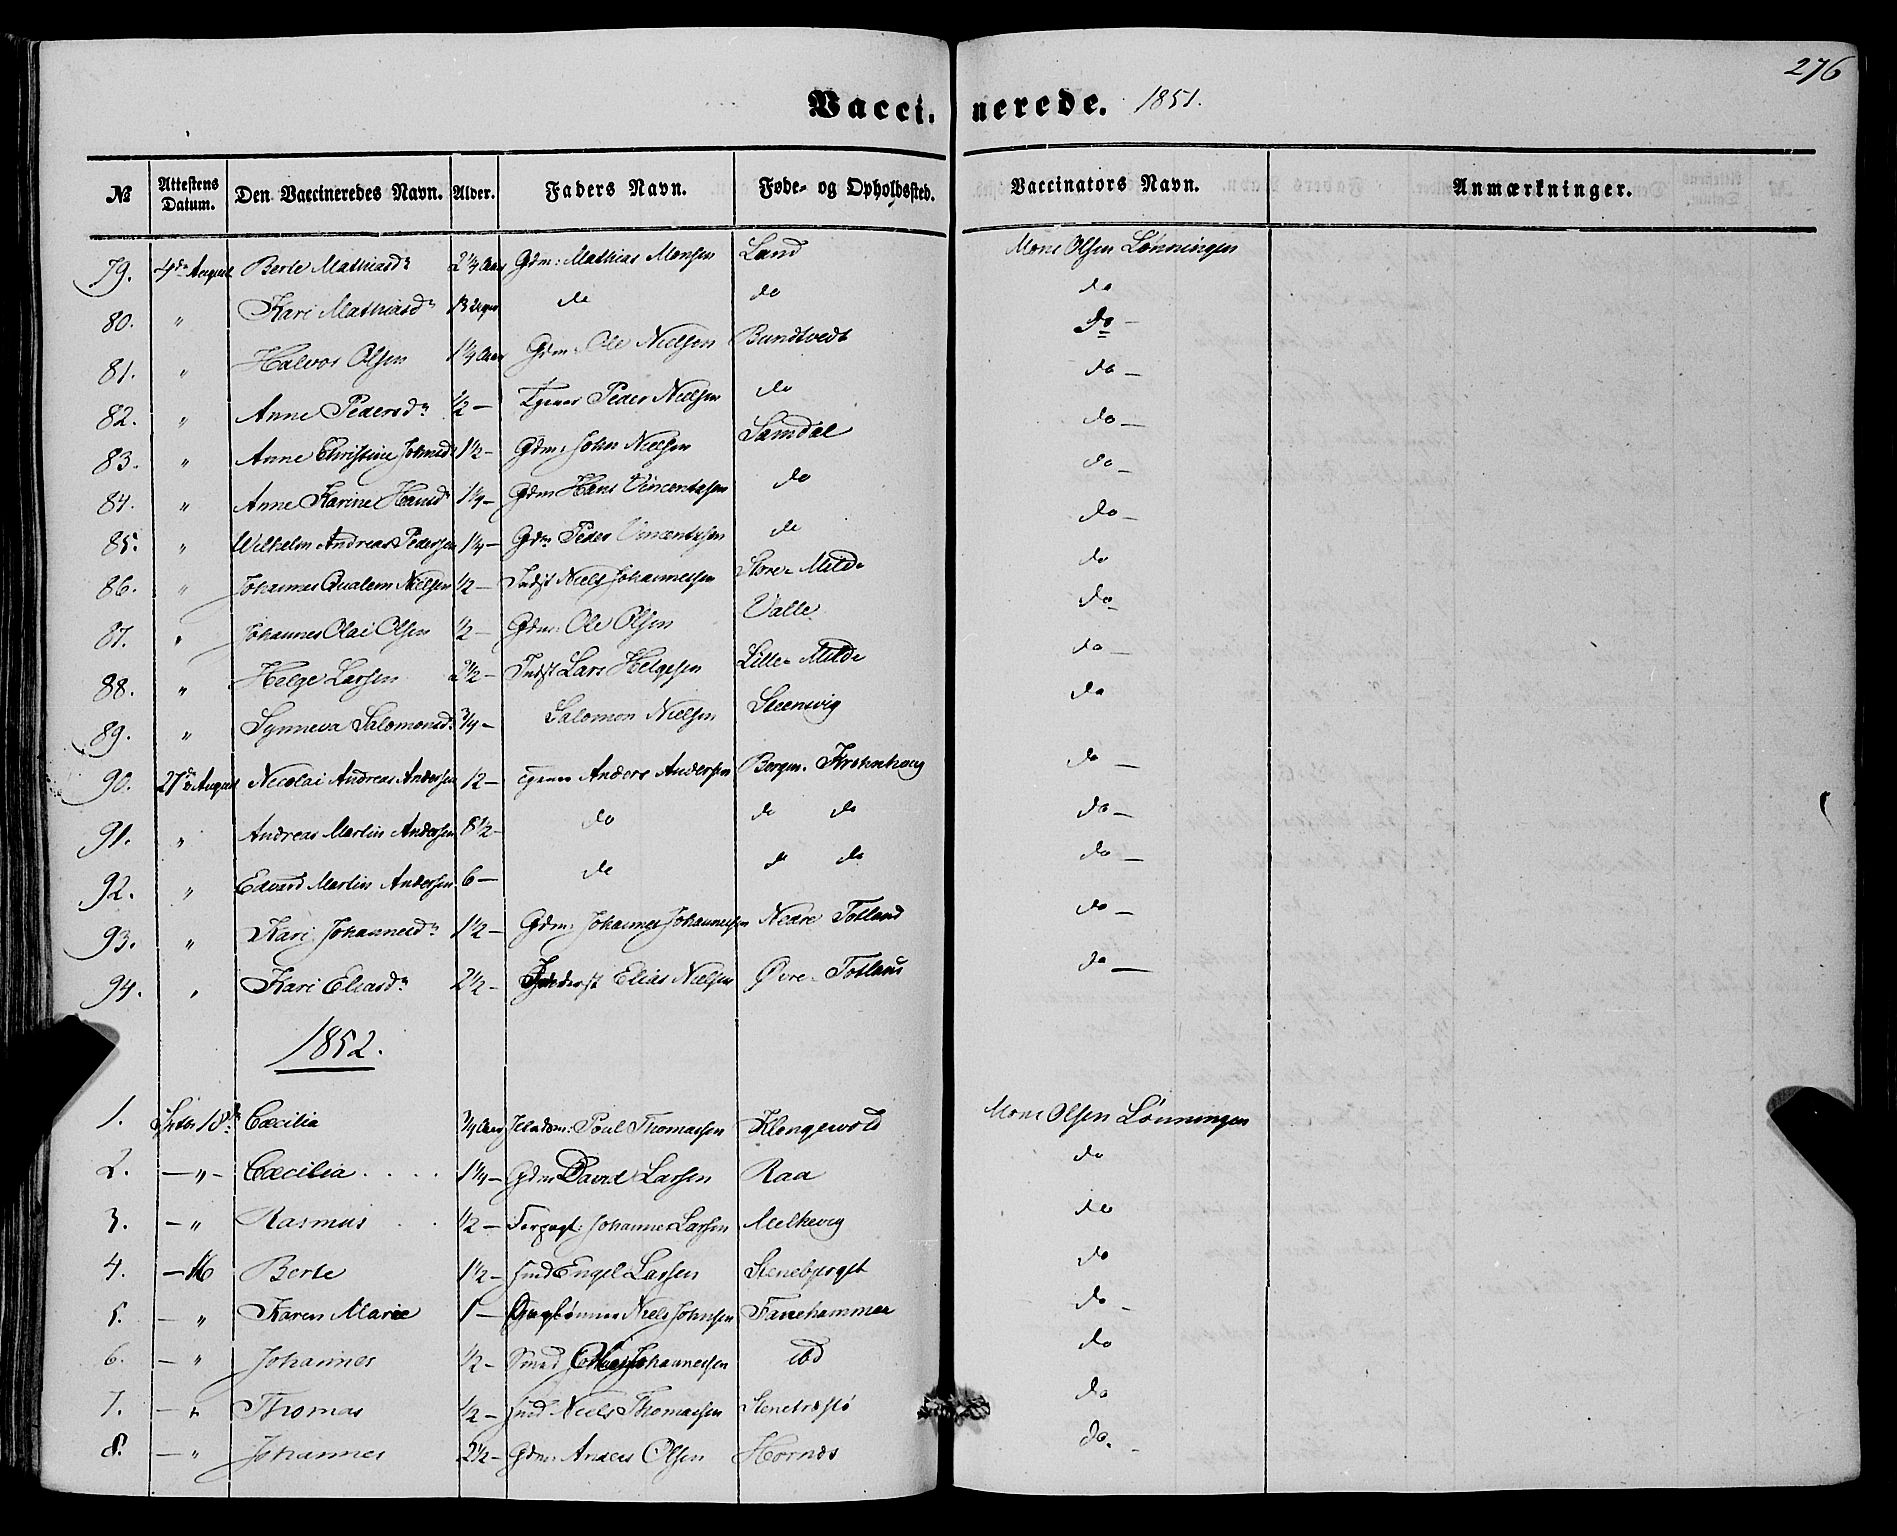 276
Vaccinerede. 1851.
№ Attestens Datum. Den Vaccineredes Navn. Alder. Faders Navn. Føde- og Opholdssted. Vaccinators Navn. Anmærkninger.
79. 4de August Berte Mathiasdr 2 1/4 Aar Gdm: Mathias Monsen Land Mons Olsen Lønningen
80. " Kari Mathiasdr 13 Uger do do do
81. " Halvor Olsen 1 1/4 Aar Gdm: Ole Nielsen Bundtvedt Do –
82. " Anne Pedersdr 1/2 – Peder Nielsen do do –
83. " Anne Christine Johnsdr 1 1/2 – Gdm: John Nielsen Samdal do –
84. " Anne Karine Hansdr 1 1/4 – Gdm: Hans Vincentzsen do do –
85. " Wilhelm Andreas Pedersen 1 1/4 – Gdm: Peder Vincentzsen do do –
86. " Johannes Qualem Nielsen 1/2 – Indst Niels Johannessen Store-Milde do
87. " Johannes Olai Olsen 1/2 – Gdm: Ole Olsen Valle do –
88. " Helge Larsen 2 1/2 – Indst Lars Helgesen Lille-Milde do –
89. " Synneva Salomonsdr 3/4 – Salomon Nielsen Steenvig do
90. 27de August Nicolai Andreas Andersen 12 – Anders Andersen Bergen. Krohnhoug do –
91. " Andreas Martin Andersen 8 1/2 – do do do do –
92. " Edvard Martin Andersen 6 – do do do do –
93. " Kari Johannesdr 1 1/2 – Gdm: Johannes Johannessen Nedre Totland do –
94. " Kari Eliasdr 2 1/2 – Inderst Elias Nielsen Øvre-Totland do –
1852.
1. 18de Cæcilia 3/4 Aar Poul Thomassen Klengevold Mons Olsen Lønningen
2. – " – Cæcilia . . . . 1 1/4 – Gdm David Larsen Raa do
3. – " Rasmus . . 1/2 – Johannes Larsen Melkevig do
4. – 16 Berte 1 1/2 – Engel Larsen Stenebjerget do
5. – " Karen Marie 1 – Niels Johnsen Fanehammer do –
6. – " Johannes 1/2 – Johannessen ibd do
7. – " Thomas 1/2 – Niels Thomassen do
8. – " Johannes 2 1/2 – Gdm: Anders Olsen Hornæs do. –